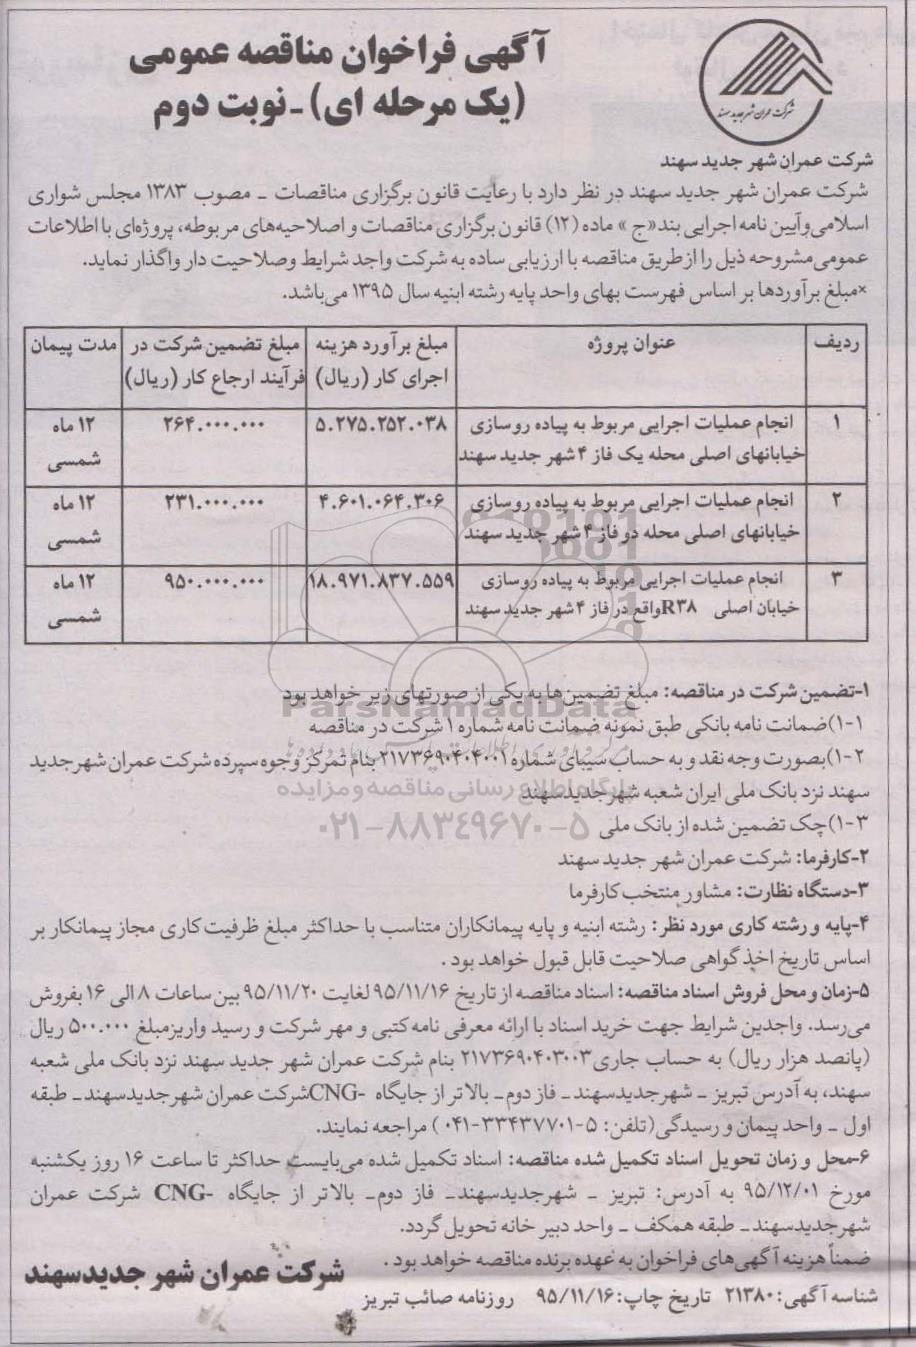 آگهی فراخوان مناقصه عمومی
(یک مرحله ای) -نوبت دوم
شرکت عمران شهر جدید سهند
شرکت عمران شهر جدید سهند
شرکت عمران شهر جدید سهند در نظر دارد با رعایت قانون برگزاری مناقصات - مصوب ۱۳۸۳ مجلس شواری
اسلامی وآیین نامه اجرایی بند«ج » ماده (۱۲) قانون برگزاری مناقصات و اصلاحیه‌های مربوطه، پروژه‌ای با اطلاعات
عمومی مشروحه ذیل را از طریق مناقصه با ارزیابی ساده به شرکت واجد شرایط وصلاحیت دار واگذار نماید.
×مبلغ برآوردها بر اساس فهرست بهای واحد پایه رشته ابنیه سال ۱۳۹۵ می‌باشد.
ردیف عنوان پروژه مبلغ برآورد هزینه اجرای کار (ریال) مبلغ تضمین شرکت در فرآیند ارجاع کار (ریال) مدت پیمان
۱ انجام عملیات اجرایی مربوط به پیاده روسازی خیابانهای اصلی محله یک فاز ۴ شهر جدید سهند ۵.۲۷۵.۲۵۲.۰۳۸ ۲۶۴.۰۰۰.۰۰۰ ۱۲ ماه شمسی
۲ انجام عملیات اجرایی مربوط به پیاده روسازی خیابانهای اصلی محله دو فاز ۴ شهر جدید سهند ۴.۶۰۱.۰۶۴.۳۰۶ ۲۳۱.۰۰۰.۰۰۰ ۱۲ ماه شمسی
۳ انجام عملیات اجرایی مربوط به پیاده روسازی خیابان اصلی R۳۸ واقع در فاز ۴ شهر جدید سهند ۱۸.۹۷۱.۸۳۷.۵۵۹ ۹۵۰.۰۰۰.۰۰۰ ۱۲ ماه شمسی
۱-تضمین شرکت در مناقصه: مبلغ تضمین‌ها به یکی از صورتهای زیر خواهد بود
ParsNamadData
۱-۱)ضمانت نامه بانکی طبق نمونه ضمانت نامه شماره ۱ شرکت در مناقصه
۱-۲)بصورت وجه نقد و به حساب سیبای شماره ۲۱۷۳۶۹۰۴۰۴۰۰۱ بنام تمرکز وجوه سپرده شرکت عمران شهر جدید
سهند نزد بانک ملی ایران شعبه شهر جدید سهند
پایگاه اطلاع رسانی مناقصه و مزایده
۱-۳)چک تضمین شده از بانک ملی
۰۲۱-۸۸۳۴۹۶۷۰-۵
۲-کارفرما: شرکت عمران شهر جدید سهند
۳-دستگاه نظارت: مشاور منتخب کارفرما
۴-پایه و رشته کاری مورد نظر: رشته ابنیه و پایه پیمانکاران متناسب با حداکثر مبلغ ظرفیت کاری مجاز پیمانکار بر
اساس تاریخ اخذ گواهی صلاحیت قابل قبول خواهد بود .
۵-زمان و محل فروش اسناد مناقصه: اسناد مناقصه از تاریخ ۹۵/۱۱/۱۶ لغایت ۹۵/۱۱/۲۰ بین ساعات ۸ الی ۱۶ بفروش
می‌رسد. واجدین شرایط جهت خرید اسناد با ارائه معرفی نامه کتبی و مهر شرکت و رسید واریز مبلغ ۵۰۰.۰۰۰ ریال
(پانصد هزار ریال) به حساب جاری ۲۱۷۳۶۹۰۴۰۳۰۰۳ بنام شرکت عمران شهر جدید سهند نزد بانک ملی شعبه
سهند، به آدرس تبریز - شهرجدیدسهند - فاز دوم- بالاتر از جایگاه CNG- شرکت عمران شهرجدیدسهند - طبقه
اول - واحد پیمان و رسیدگی(تلفن: ۵-۰۴۱-۳۳۴۳۷۷۰۱ ) مراجعه نمایند.
۶-محل و زمان تحویل اسناد تکمیل شده مناقصه: اسناد تکمیل شده می‌بایست حداکثر تا ساعت ۱۶ روز یکشنبه
مورخ ۹۵/۱۲/۰۱ به آدرس: تبریز - شهرجدیدسهند- فاز دوم- بالاتر از جایگاه CNG- شرکت عمران
شهرجدیدسهند- طبقه همکف - واحد دبیر خانه تحویل گردد.
ضمناً هزینه آگهی‌های فراخوان به عهده برنده مناقصه خواهد بود .
شرکت عمران شهر جدیدسهند
شناسه آگهی: ۲۱۳۸۰ تاریخ چاپ: ۹۵/۱۱/۱۶ روزنامه صائب تبریز